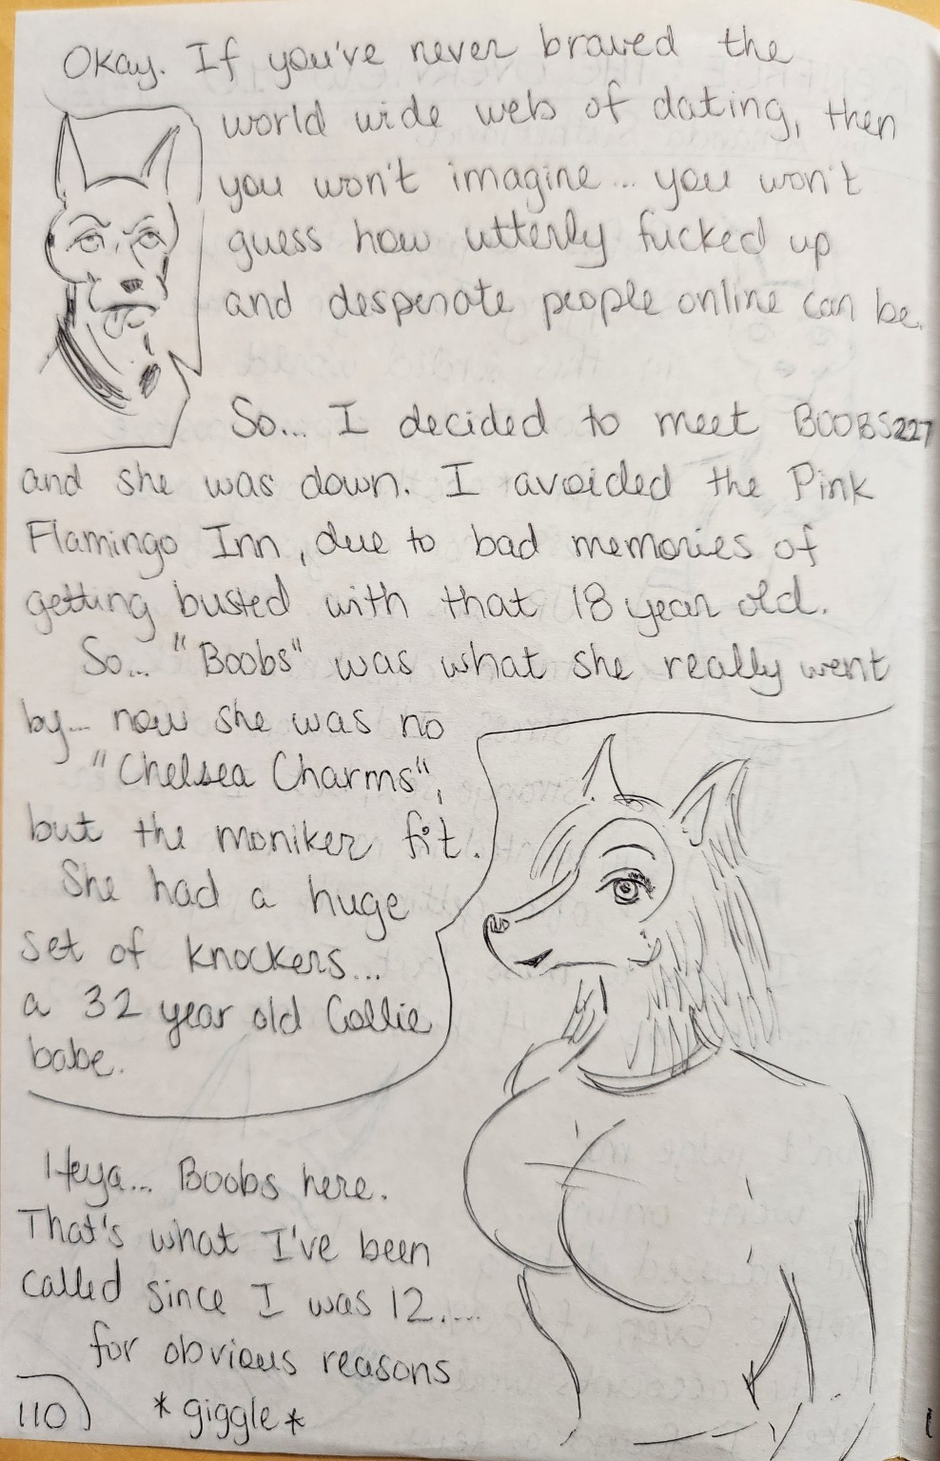 Okay. If you've never braved the
world wide web of dating, then
you won't imagine... you won't
guess how utterly fucked up
and desperate people online can be.
So... I decided to meet BOOBS227
and she was down. I avoided the Pink
Flamingo Inn, due to bad memories of
getting busted with that 18 year old.
So... "Boobs" was what she really went
by... now she was no
"Chelsea Charms",
but the moniker fit.
She had a huge
set of knockers...
a 32 year old Collie
babe.
Heya... Boobs here.
That's what I've been
called since I was 12....
for obvious reasons
*giggle*
110